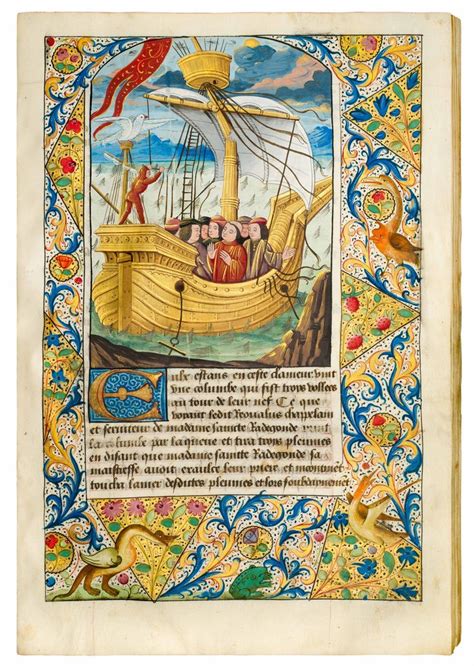 Eulx estans en ceste clameur vint
vne columbe qui fist troys vollees
au tour de leur nef Ce que
voyant ledit Roualus chappelain
et seruiteur de madame saincte Radegonde print
la columbe par la queue et tira troys plumes
en disant que madame saincte Radegonde sa
maistresse auoit exaulce leur prier et
toucha la mer desdites plumes et lors soubdainemet